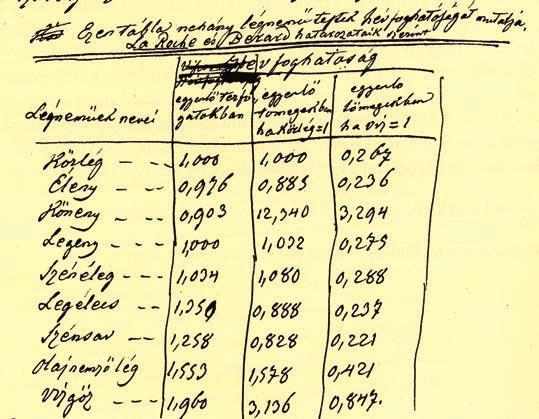 Ezen tábla nehány légnemű testek hévfoghatóságát mutatja,
La Roche és Berard határozataik szerint
Hévfoghatóság
Légneműek nevei
egyenlő térfogatokban
egyenlő tömegekben ha közlég=1
egyenlő tömegekben ha víz=1
Közlég -- 1,000 1,000 0,267
Éleny -- 0,976 0,885 0,236
Köneny -- 0,903 12,340 3,294
Legeny -- 1,000 1,032 0,275
Szénéleg -- 1,034 1,080 0,288
Legélecs -- 1,350 0,888 0,237
Szénsav -- 1,258 0,828 0,221
Olajnemző lég 1,553 1,578 0,421
Vízgőz -- 1,960 3,136 0,847.